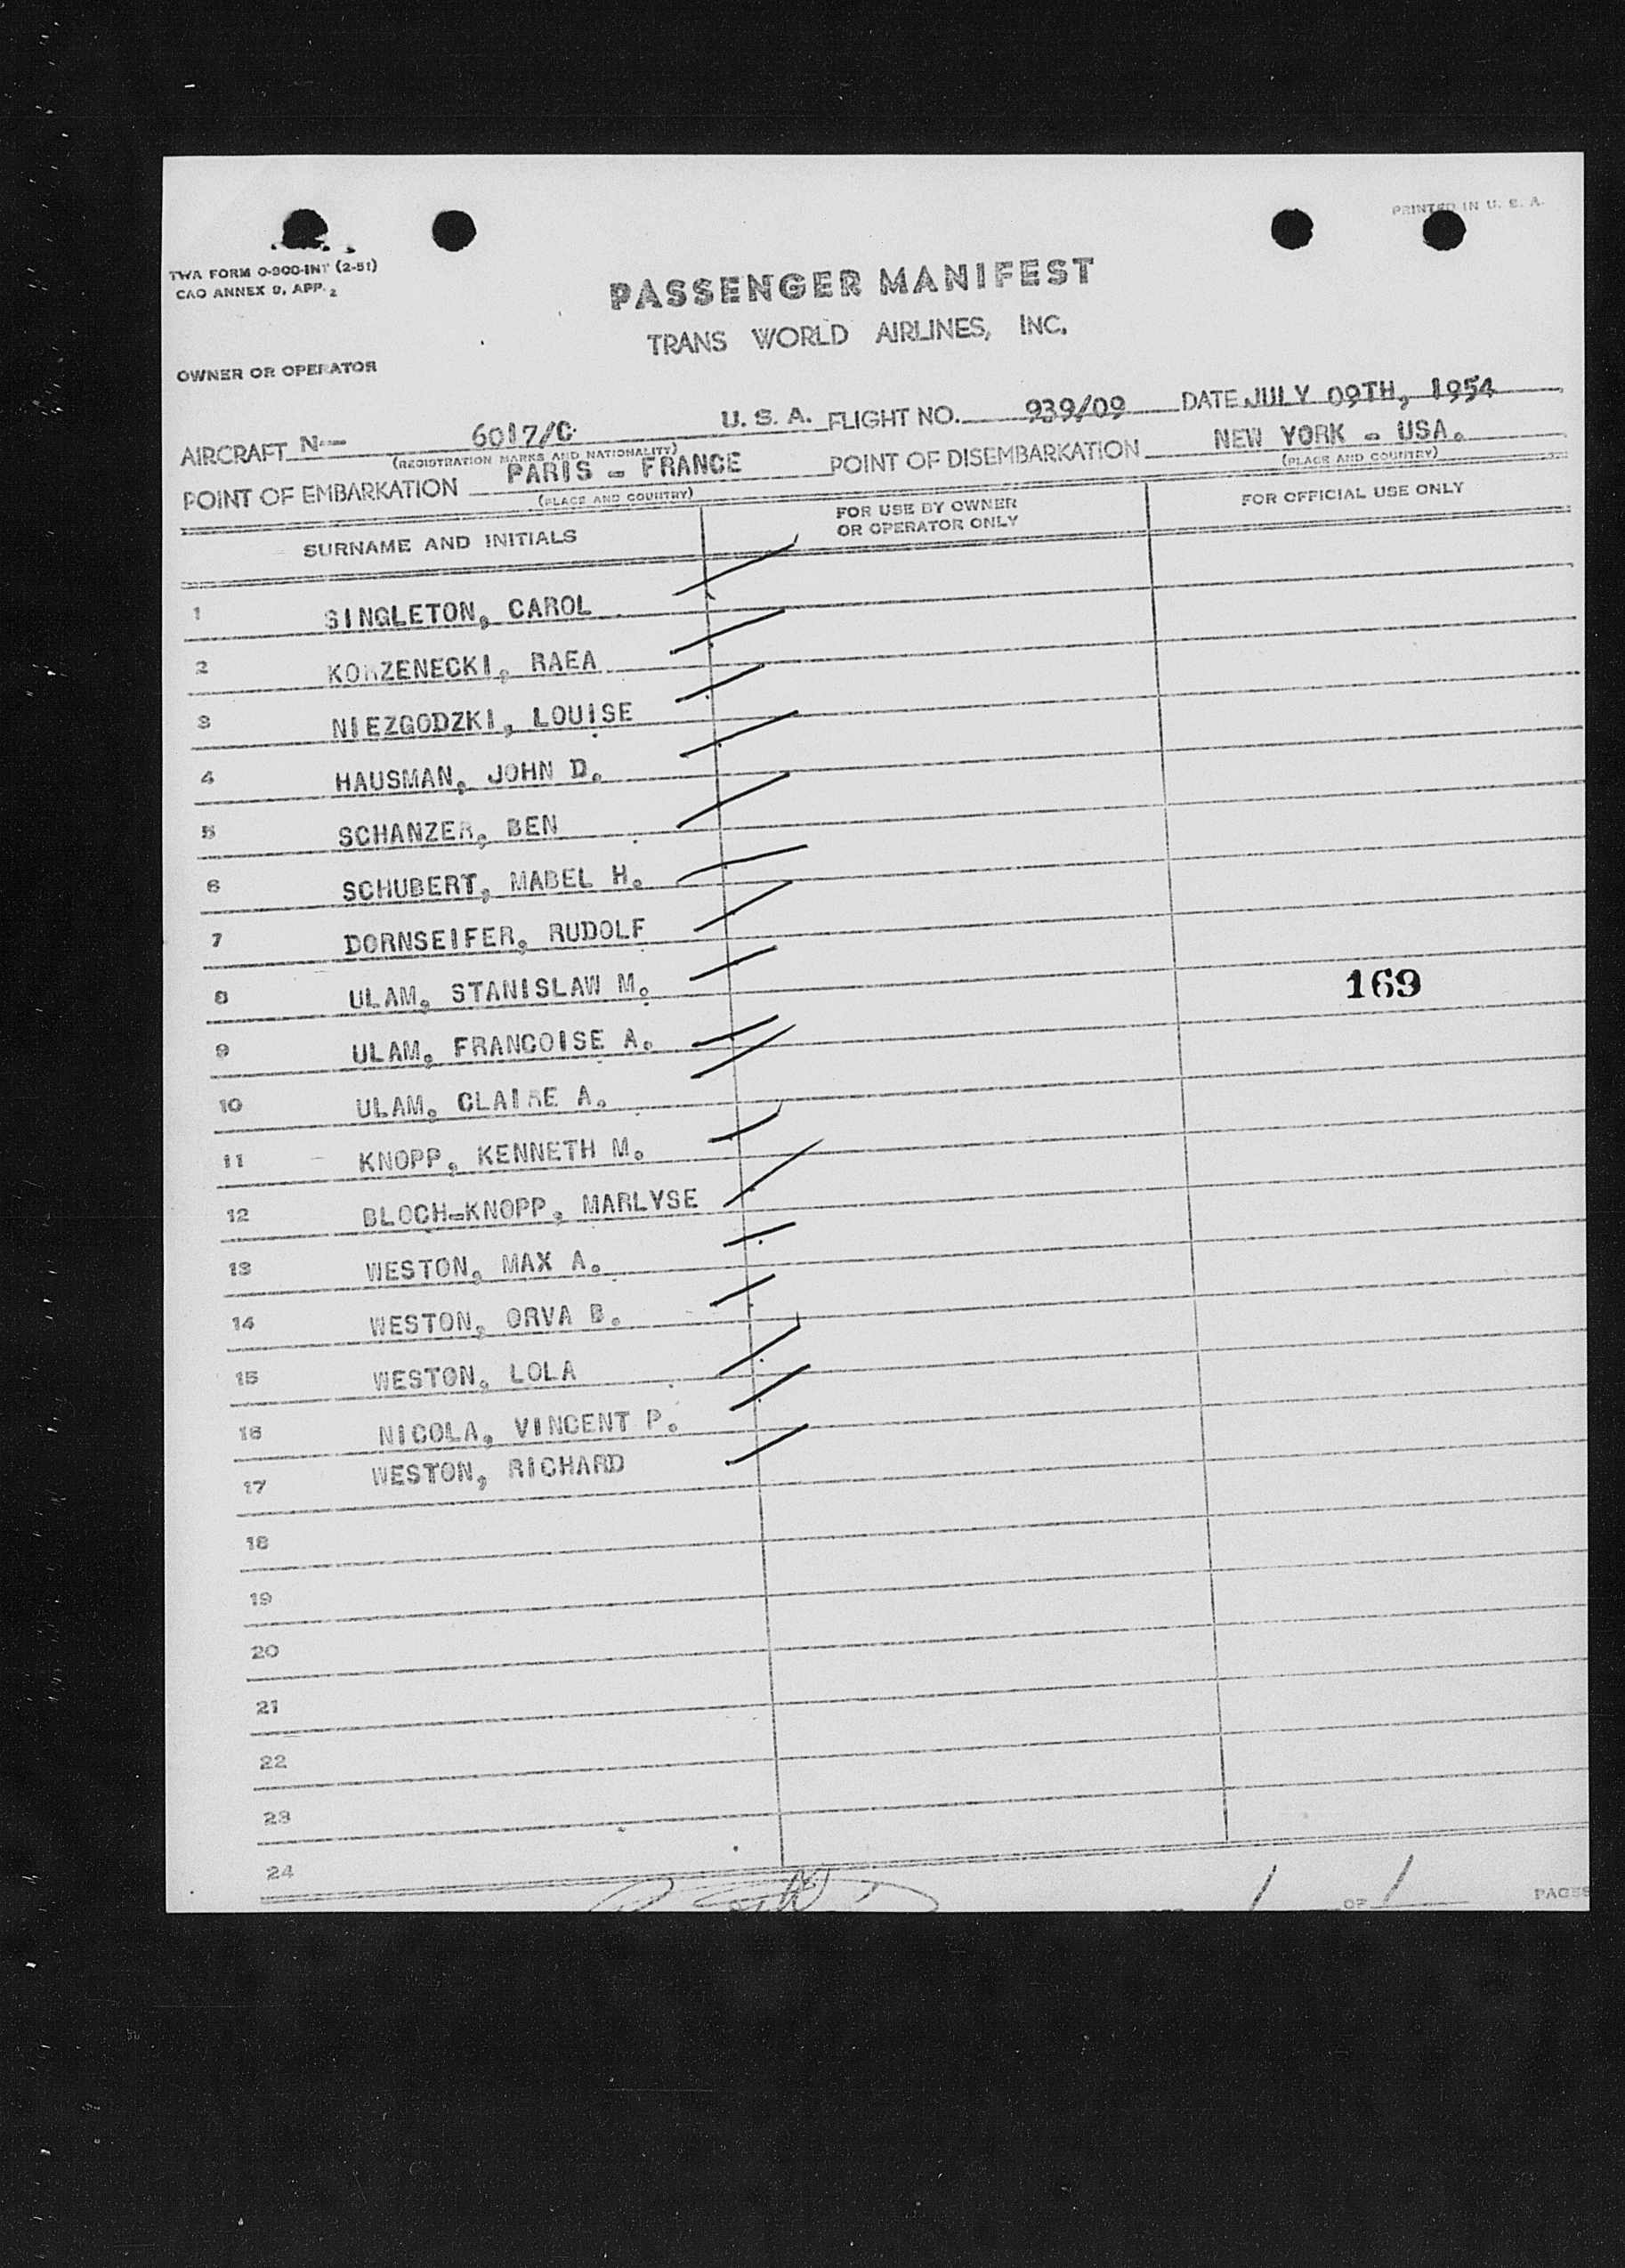 PRINTED IN U. S. A.
TWA FORM O-900-INT (2-51)
CAO ANNEX 9, APP. 2
PASSENGER MANIFEST
TRANS WORLD AIRLINES, INC.
OWNER OR OPERATOR
AIRCRAFT N-- 6017/C U. S. A. FLIGHT NO. 939/09 DATE JULY 09TH, 1954
(REGISTRATION MARKS AND NATIONALITY)
POINT OF EMBARKATION PARIS - FRANCE POINT OF DISEMBARKATION NEW YORK - USA.
(PLACE AND COUNTRY) (PLACE AND COUNTRY)
SURNAME AND INITIALS FOR USE BY OWNER OR OPERATOR ONLY FOR OFFICIAL USE ONLY
1 SINGLETON, CAROL
2 KORZENECKI, RAEA
3 NIEZGODZKI, LOUISE
4 HAUSMAN, JOHN D.
5 SCHANZER, BEN
6 SCHUBERT, MABEL H.
7 DORNSEIFER, RUDOLF
8 ULAM, STANISLAW M. 169
9 ULAM, FRANCOISE A.
10 ULAM, CLAIRE A.
11 KNOPP, KENNETH M.
12 BLOCH-KNOPP, MARLYSE
13 WESTON, MAX A.
14 WESTON, ORVA B.
15 WESTON, LOLA
16 NICOLA, VINCENT P.
17 WESTON, RICHARD
18
19
20
21
22
23
24
1 OF 1 PAGES